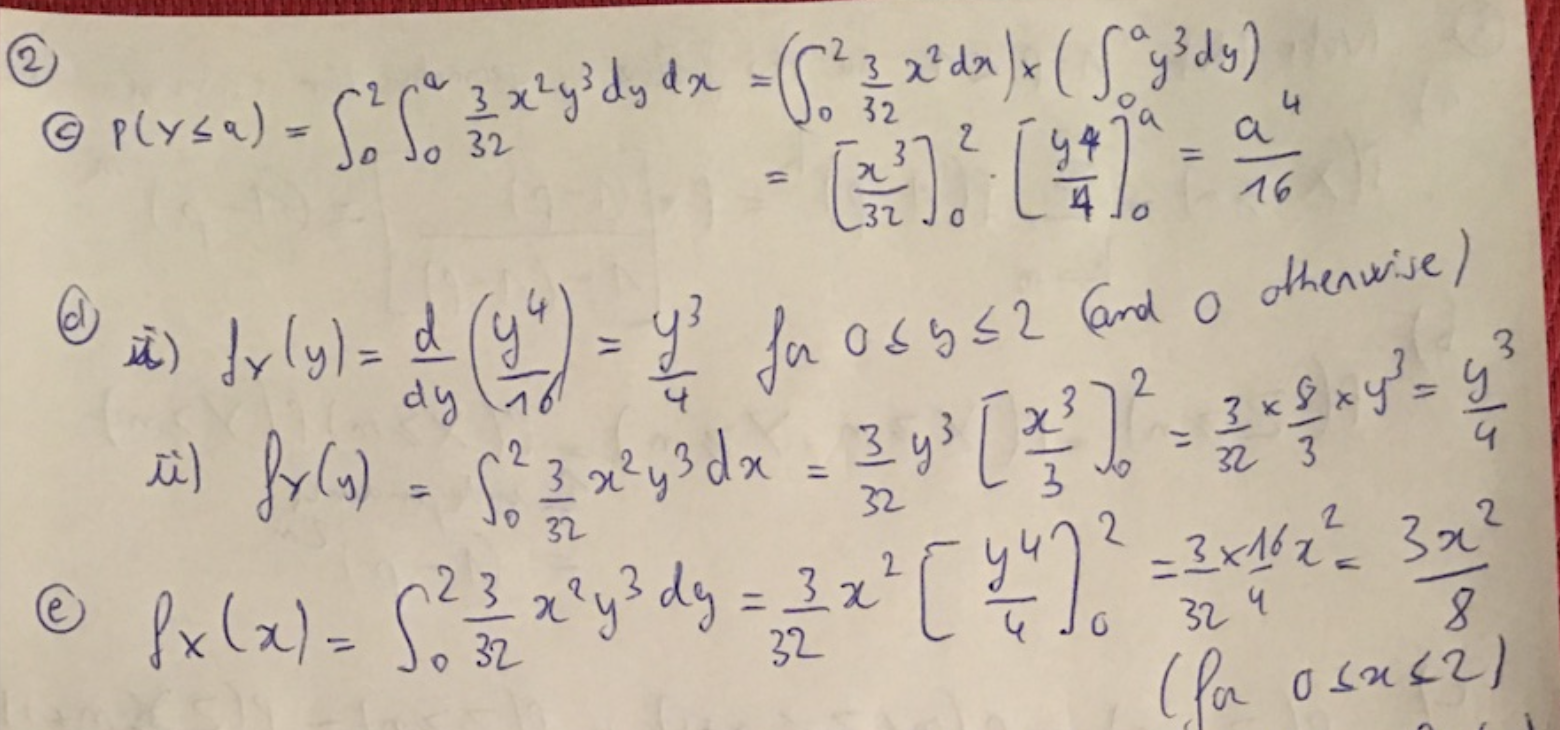 ②
ⓒ P(Y≤a) = ∫₀² ∫₀ᵃ 3/32 x²y³ dy dx = (∫₀² 3/32 x² dx) × (∫₀ᵃ y³ dy)
= [x³/32]₀² · [y⁴/4]₀ᵃ = a⁴/16
ⓓ i) f_Y(y) = d/dy (y⁴/16) = y³/4 for 0 ≤ y ≤ 2 (and 0 otherwise)
ii) f_Y(y) = ∫₀² 3/32 x²y³ dx = 3/32 y³ [x³/3]₀² = 3/32 × 8/3 × y³ = y³/4
ⓔ f_X(x) = ∫₀² 3/32 x²y³ dy = 3/32 x² [y⁴/4]₀² = 3/32 × 16/4 x² = 3x²/8
(for 0 ≤ x ≤ 2)